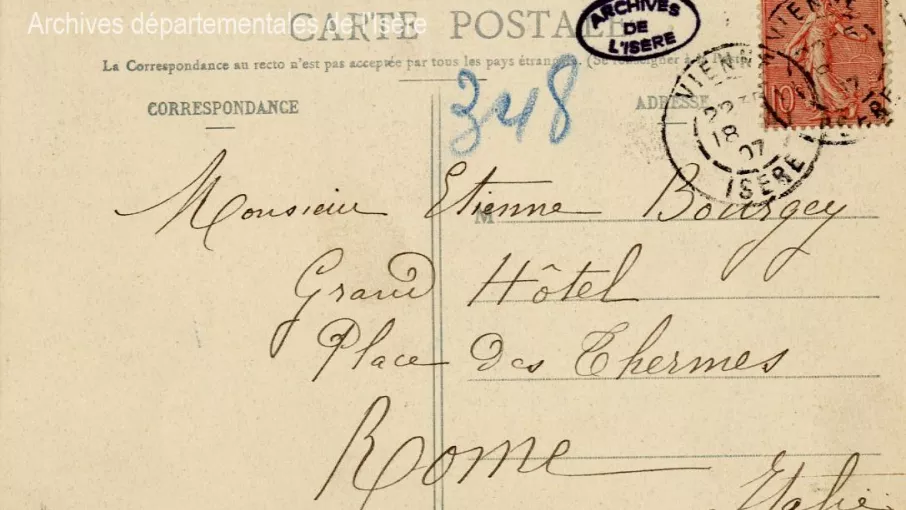 Archives départementales de l'Isère
CARTE POSTALE
ARCHIVES
DE
L'ISERE
La Correspondance au recto n'est pas acceptée par tous les pays étrangers. (Se renseigner à la Poste
348
CORRESPONDANCE
ADRESSE
VIENNE
18
07
ISERE
10
VIENNE
ISERE
Monsieur Etienne Bourgey
M
Grand Hôtel
Place des Thermes
Rome
Italie